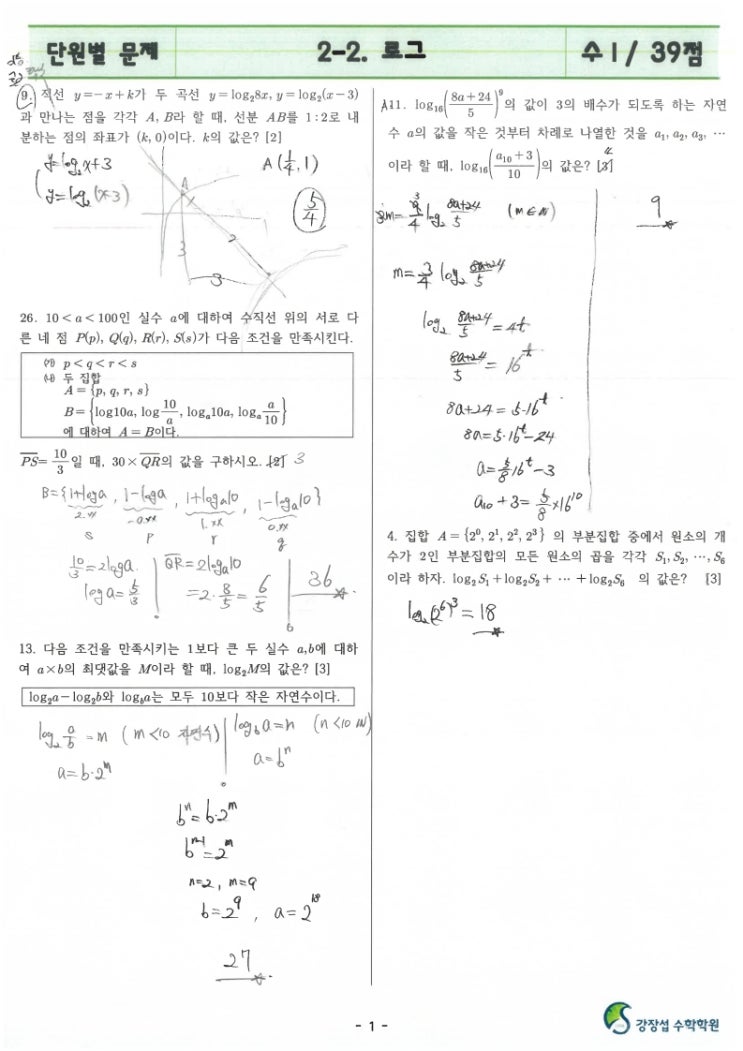 단원별 문제
2-2. 로그
수Ⅰ/ 39점
9. 직선 y=-x+k가 두 곡선 y=log₂8x, y=log₂(x-3)
과 만나는 점을 각각 A, B라 할 때, 선분 AB를 1:2로 내
분하는 점의 좌표가 (k, 0)이다. k의 값은? [2]
y=log₂x+3
y=log₂(x-3)
A(1/4, 1)
5/4
A
2
3
3
26. 10<a<100인 실수 a에 대하여 수직선 위의 서로 다
른 네 점 P(p), Q(q), R(r), S(s)가 다음 조건을 만족시킨다.
㈎ p<q<r<s
㈏ 두 집합
A={p, q, r, s}
B={log10a, log 10/a, logₐ10a, logₐ a/10}
에 대하여 A=B이다.
PS=10/3일 때, 30×QR의 값을 구하시오. [2] 3
B={1+loga, 1-loga, 1+logₐ10, 1-logₐ10}
2.xx -0.xx 1.xx 0.xx
s p r q
10/3=2loga.
loga=5/3
QR=2logₐ10
=2·8/5=6/5
36
13. 다음 조건을 만족시키는 1보다 큰 두 실수 a,b에 대하
여 a×b의 최댓값을 M이라 할 때, log₂M의 값은? [3]
log₂a-log₂b와 log_b a는 모두 10보다 작은 자연수이다.
log₂ a/b = m (m<10 자연수)
a=b·2ᵐ
log_b a=n (n<10 N)
a=bⁿ
bⁿ=b·2ᵐ
bⁿ⁻¹=2ᵐ
n=2, m=9
b=2⁹, a=2¹⁸
27
A11. log₁₆((8a+24)/5)⁹의 값이 3의 배수가 되도록 하는 자연
수 a의 값을 작은 것부터 차례로 나열한 것을 a₁, a₂, a₃, ⋯
이라 할 때, log₁₆((a₁₀+3)/10)의 값은? [3] 4
3m=9/4 log₂ (8a+24)/5 (m∈N)
3
m=3/4 log₂ (8a+24)/5
log₂ (8a+24)/5=4t
(8a+24)/5=16ᵗ
8a+24=5·16ᵗ
8a=5·16ᵗ-24
a=5/8 16ᵗ-3
a₁₀+3=5/8×16¹⁰
9
4. 집합 A={2⁰, 2¹, 2², 2³} 의 부분집합 중에서 원소의 개
수가 2인 부분집합의 모든 원소의 곱을 각각 S₁, S₂, ⋯, S₆
이라 하자. log₂S₁+log₂S₂+ ⋯ +log₂S₆ 의 값은? [3]
log₂(2⁶)³=18
- 1 -
강장섭 수학학원